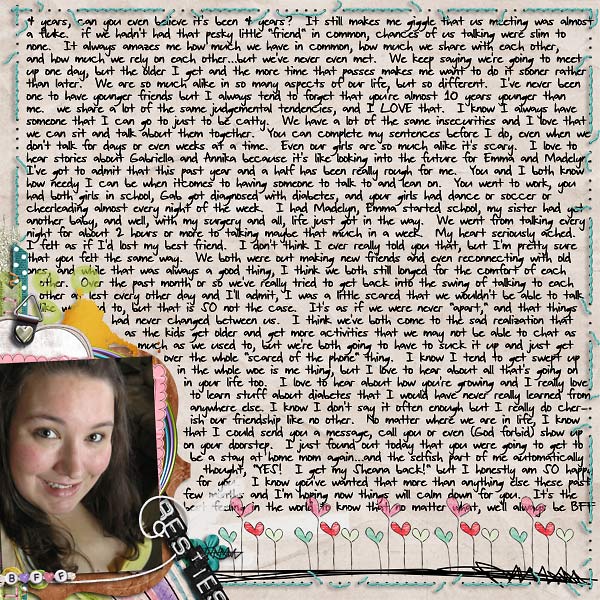 4 years, can you even believe it's been 4 years? It still makes me giggle that us meeting was almost
a fluke. if we hadn't had that pesky little "friend" in common, chances of us talking were slim to
none. It always amazes me how much we have in common, how much we share with each other,
and how much we rely on each other...but we've never even met. We keep saying we're going to meet
up one day, but the older I get and the more time that passes makes me want to do it sooner rather
than later. We are so much alike in so many aspects of our life, but so different. I've never been
one to have younger friends but I always tend to forget that you're almost 10 years younger than
me. we share a lot of the same judgemental tendencies, and I LOVE that. I know I always have
someone that I can go to just to be catty. We have a lot of the same insecurities and I love that
we can sit and talk about them together. You can complete my sentences before I do, even when we
don't talk for days or even weeks at a time. Even our girls are so much alike it's scary. I love to
hear stories about Gabriella and Annika because it's like looking into the future for Emma and Madelyn.
I've got to admit that this past year and a half has been really rough for me. You and I both know
how needy I can be when itcomes to having someone to talk to and lean on. You went to work, you
had both girls in school, Gab got diagnosed with diabetes, and your girls had dance or soccer or
cheerleading almost every night of the week. I had Madelyn, Emma started school, my sister had yet
another baby, and well, with my surgery and all, life just got in the way. We went from talking every
night for about 2 hours or more to talking maybe that much in a week. My heart seriously ached.
I felt as if I'd lost my best friend. I don't think I ever really told you that, but I'm pretty sure
that you felt the same way. We both were out making new friends and even reconnecting with old
ones, and while that was always a good thing, I think we both still longed for the comfort of each
other. Over the past month or so we've really tried to get back into the swing of talking to each
other at lest every other day and I'll admit, "I was a little scared that we wouldn't be able to talk
like we used to, but that is SO not the case. It's as if we were never "apart," and that things
had never changed between us. I think we've both come to the sad realization that
as the kids get older and get more activities that we may not be able to chat as
much as we used to, but we're both going to have to suck it up and just get
over the whole "scared of the phone" thing. I know I tend to get swept up
in the whole woe is me thing, but I love to hear about all that's going on
in your life too. I love to hear about how you're growing and I really love
to learn stuff about diabetes that I would have never really learned from
anywhere else. I know I don't say it often enough but I really do cher--
ish our friendship like no other. No matter where we are in life, I know
that I could send you a message, call you or even (God forbid) show up
on your doorstep. I just found out today that you were going to get to
be a stay at home mom again...and the selfish part of me automatically
thought, "YES! I get my Sheana back!" but I honestly am SO happy
for you. I know you've wanted that more than anything else these past
few months and I'm hoping now things will calm down for you. It's the
best feeling in the world to know that no matter what, we'll always be BFF
BESTIES
BFF